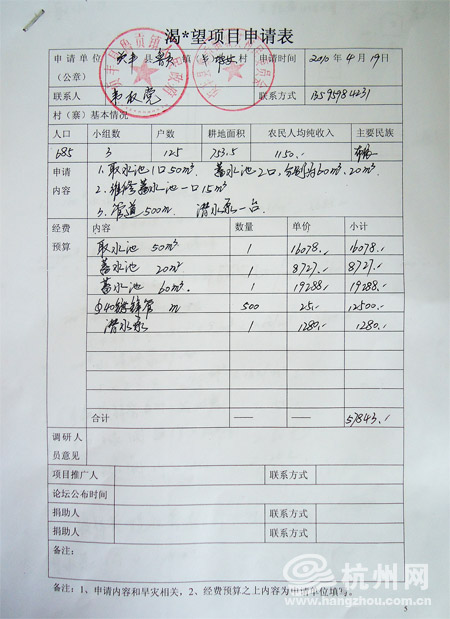 渴*望项目申请表
申请单位 贞丰县鲁贡镇 村 申请时间 2010年4月19日
(公章)
联系人 韦权党 联系方式 13595984231
村(寨)基本情况
人口 小组数 户数 耕地面积 农民人均纯收入 主要民族
685 3 125 753.5 1150.-
申请 1.取水池1口50m³ 蓄水池2口,分别为60m³、20m³
内容 2.维修蓄水池一口15m³
3.管道500m. 潜水泵一台.
经费 内容 数量 单价 小计
预算 取水池 50m³ 1 16078.- 16078.-
蓄水池 20m³ 1 8727.- 8727.-
蓄水池 60m³ 1 19288.- 19288.-
Φ40镀锌管 m 500 25.- 12500.-
潜水泵 1 1280.- 1280.-
合计 —— —— 57843.-
调研人
员意见
项目推广人 联系方式
论坛公布时间
捐助人 联系方式
捐助人 联系方式
备注:
备注:1、申请内容和旱灾相关,2、经费预算之上内容为申请单位填写。
杭州网
www.hangzhou.com.cn